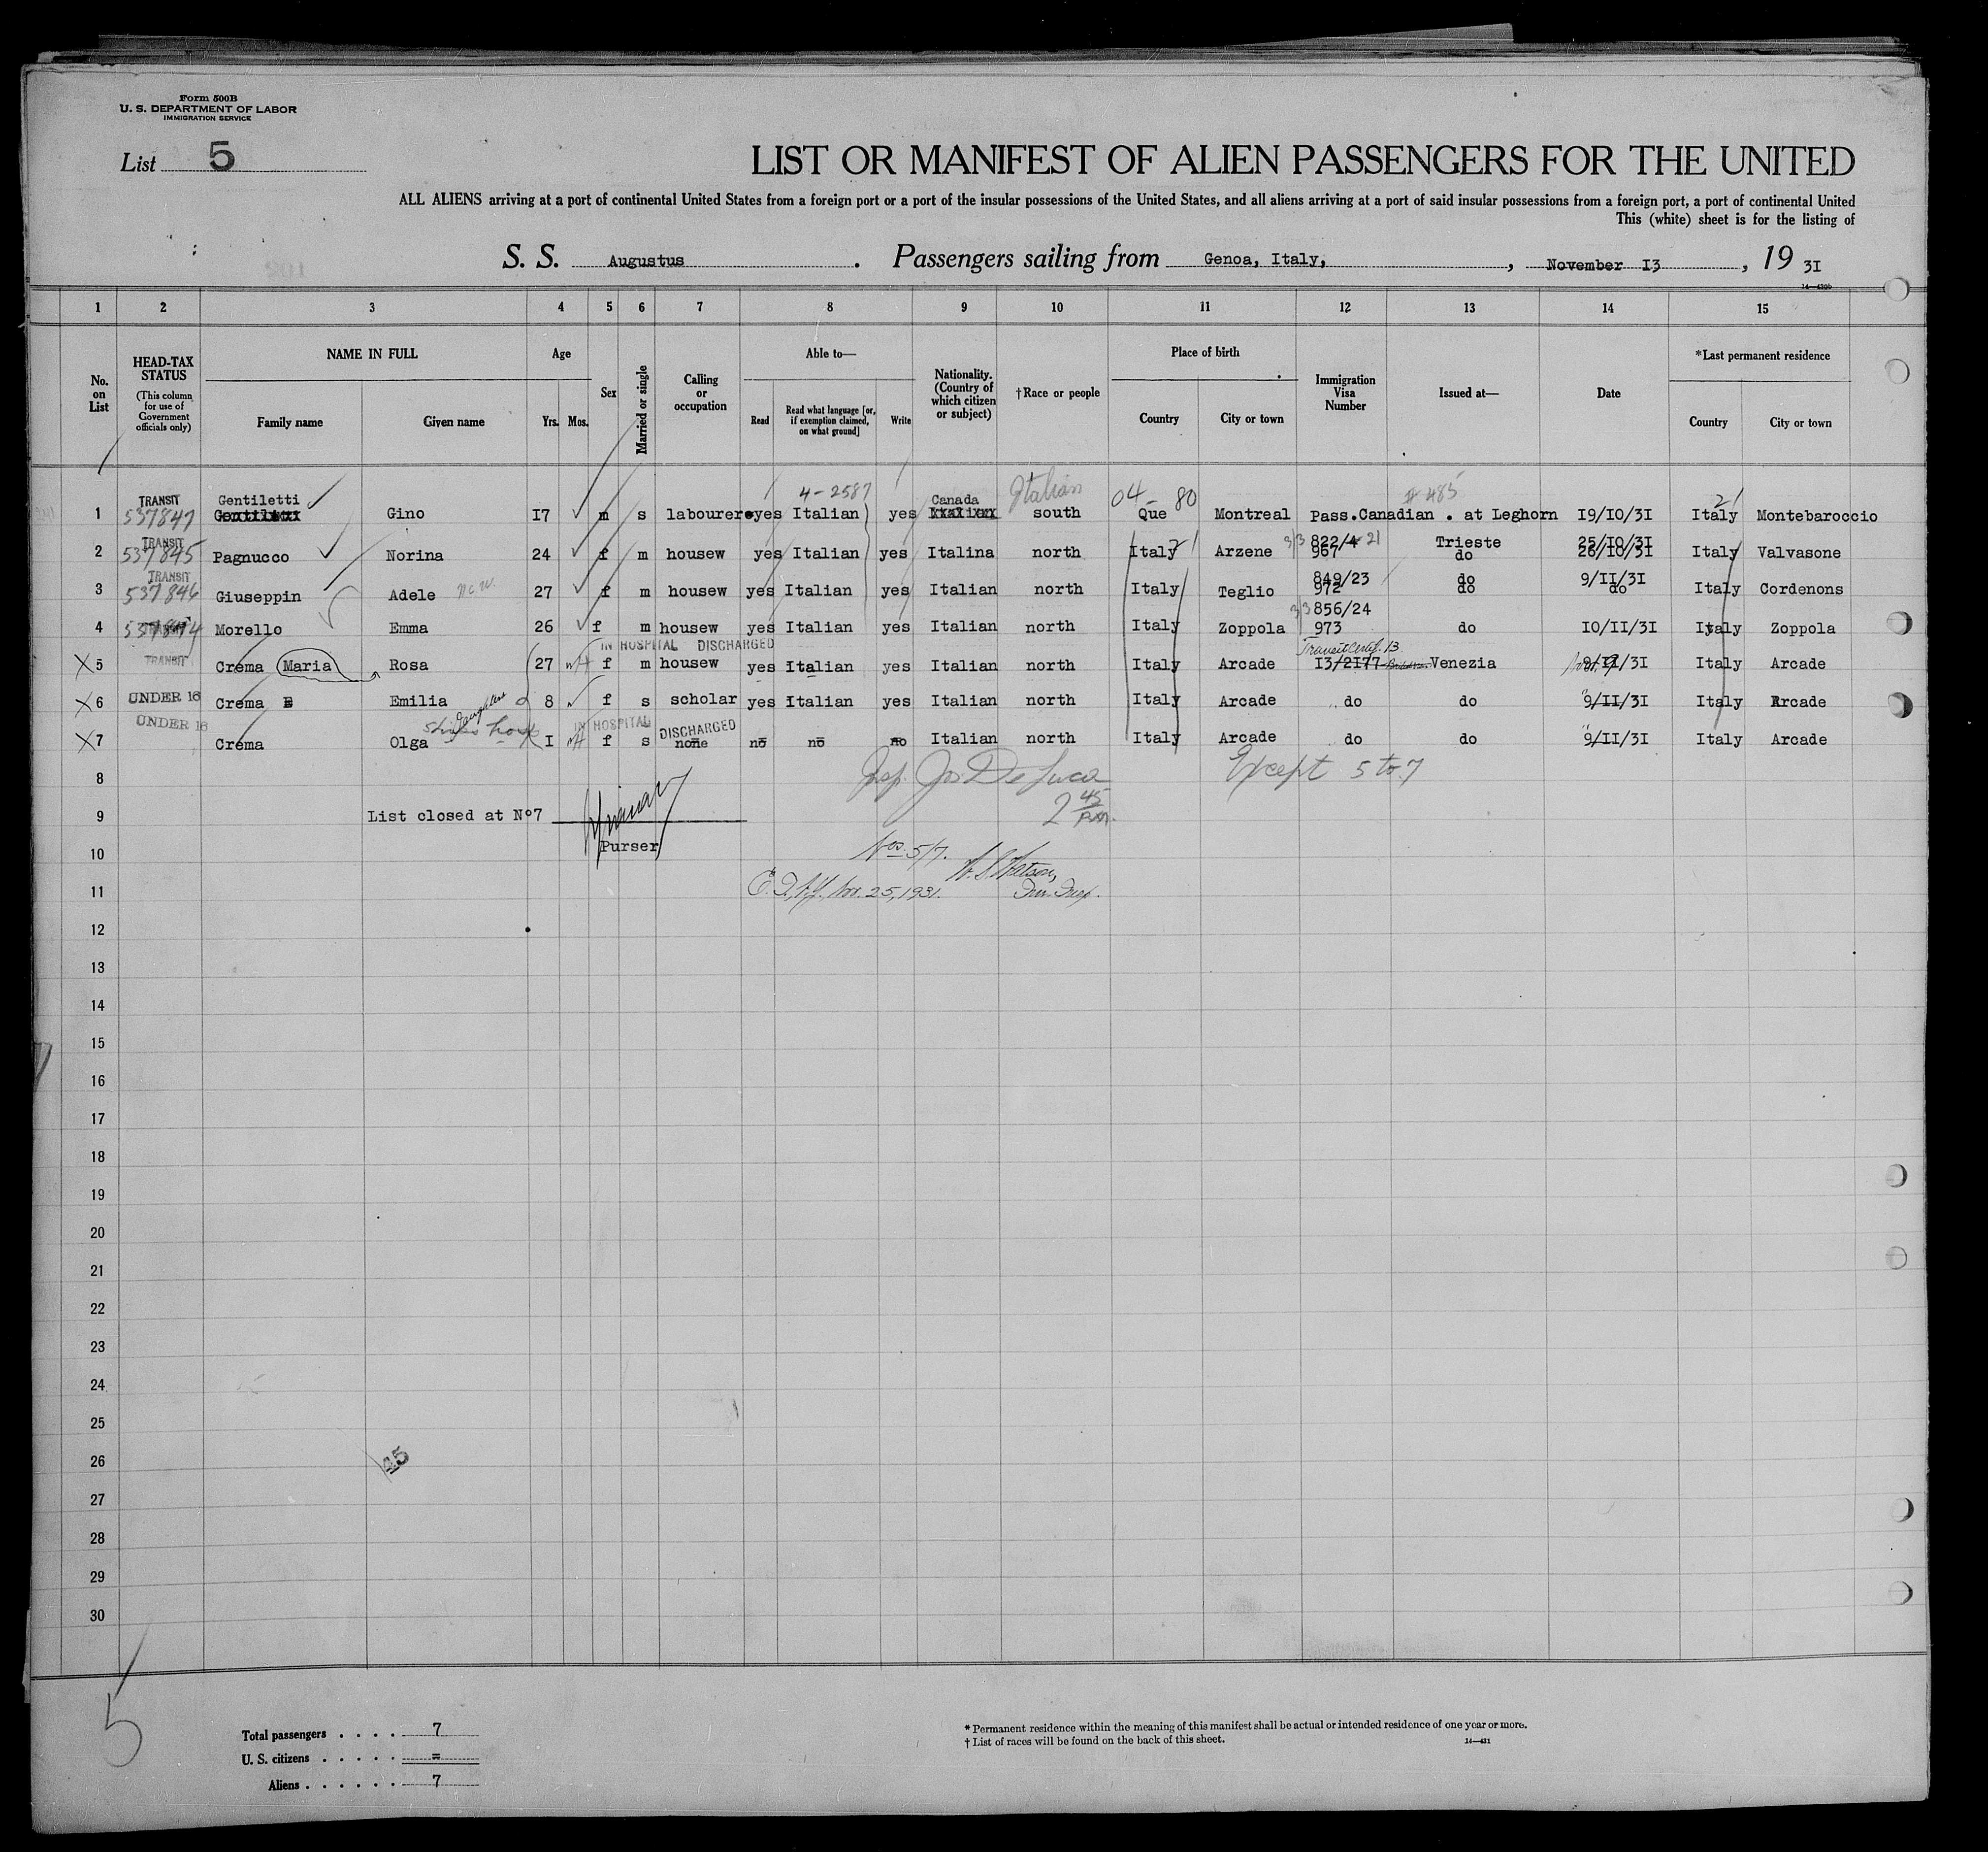 Form 500B
U. S. DEPARTMENT OF LABOR
IMMIGRATION SERVICE
List 5
LIST OR MANIFEST OF ALIEN PASSENGERS FOR THE UNITED
ALL ALIENS arriving at a port of continental United States from a foreign port or a port of the insular possessions of the United States, and all aliens arriving at a port of said insular possessions from a foreign port, a port of continental United
This (white) sheet is for the listing of
S. S. Augustus. Passengers sailing from Genoa, Italy, , November I3 , 19 3I
14—430b
1 2 3 4 5 6 7 8 9 10 11 12 13 14 15
No. on List
HEAD-TAX STATUS (This column for use of Government officials only)
NAME IN FULL Family name Given name
Age Yrs. Mos.
Sex
Married or single
Calling or occupation
Able to— Read Read what language [or, if exemption claimed, on what ground] Write
Nationality. (Country of which citizen or subject)
†Race or people
Place of birth Country City or town
Immigration Visa Number
Issued at—
Date
*Last permanent residence Country City or town
4-2587 Italian 04- 80 # 485 21
1 TRANSIT 537847 Gentiletti Gino I7 m s labourer yes Italian yes Canada south Que Montreal Pass.Canadian . at Leghorn I9/IO/3I Italy Montebaroccio
2 TRANSIT 537845 Pagnucco Norina 24 f m housew yes Italian yes Italina north Italy Arzene 822/4 21 967 Trieste do 25/IO/3I 26/IO/3I Italy Valvasone
3 TRANSIT 537846 Giuseppin Adele 27 f m housew yes Italian yes Italian north Italy Teglio 849/23 972 do do 9/II/3I do Italy Cordenons
4 Morello Emma 26 f m housew yes Italian yes Italian north Italy Zoppola 856/24 973 do IO/II/3I Italy Zoppola
IN HOSPITAL DISCHARGED
Transit Certif. 13
X5 TRANSIT Crema Maria Rosa 27 f m housew yes Italian yes Italian north Italy Arcade I3/2I77 Venezia 9/II/3I Italy Arcade
X6 UNDER 16 Crema Emilia 8 f s scholar yes Italian yes Italian north Italy Arcade do do 9/II/3I Italy Arcade
daughters
IN HOSPITAL DISCHARGED
X7 UNDER 16 Crema Olga I f s none no no no Italian north Italy Arcade do do 9/II/3I Italy Arcade
8 Insp. Jos De Luca Except 5 to 7
9 List closed at Nº7 2 45 P.M.
Purser
10 Nos. 5/7.
11 Nov. 25, 1931. Imm. Insp.
12
13
14
15
16
17
18
19
20
21
22
23
24
25
26 45
27
28
29
30
5
Total passengers . . . . 7
U. S. citizens . . . . . =
Aliens . . . . . . 7
* Permanent residence within the meaning of this manifest shall be actual or intended residence of one year or more.
† List of races will be found on the back of this sheet. 14—431